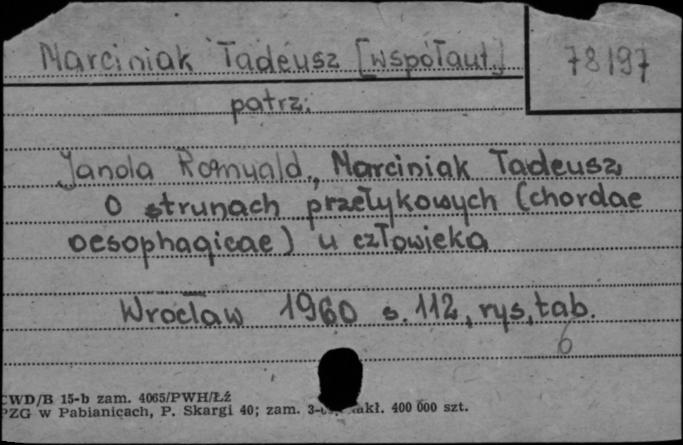 Marciniak Tadeusz [współaut.]
78197
patrz:
Janda Romuald, Marciniak Tadeusz
O strunach przełykowych (chordae
oesophagicae) u człowieka
Wrocław 1960 s. 112, rys, tab.
6
CWD/B 15-b zam. 4065/PWH/Łź
PZG w Pabianicach, P. Skargi 40; zam. nakł. 400 000 szt.